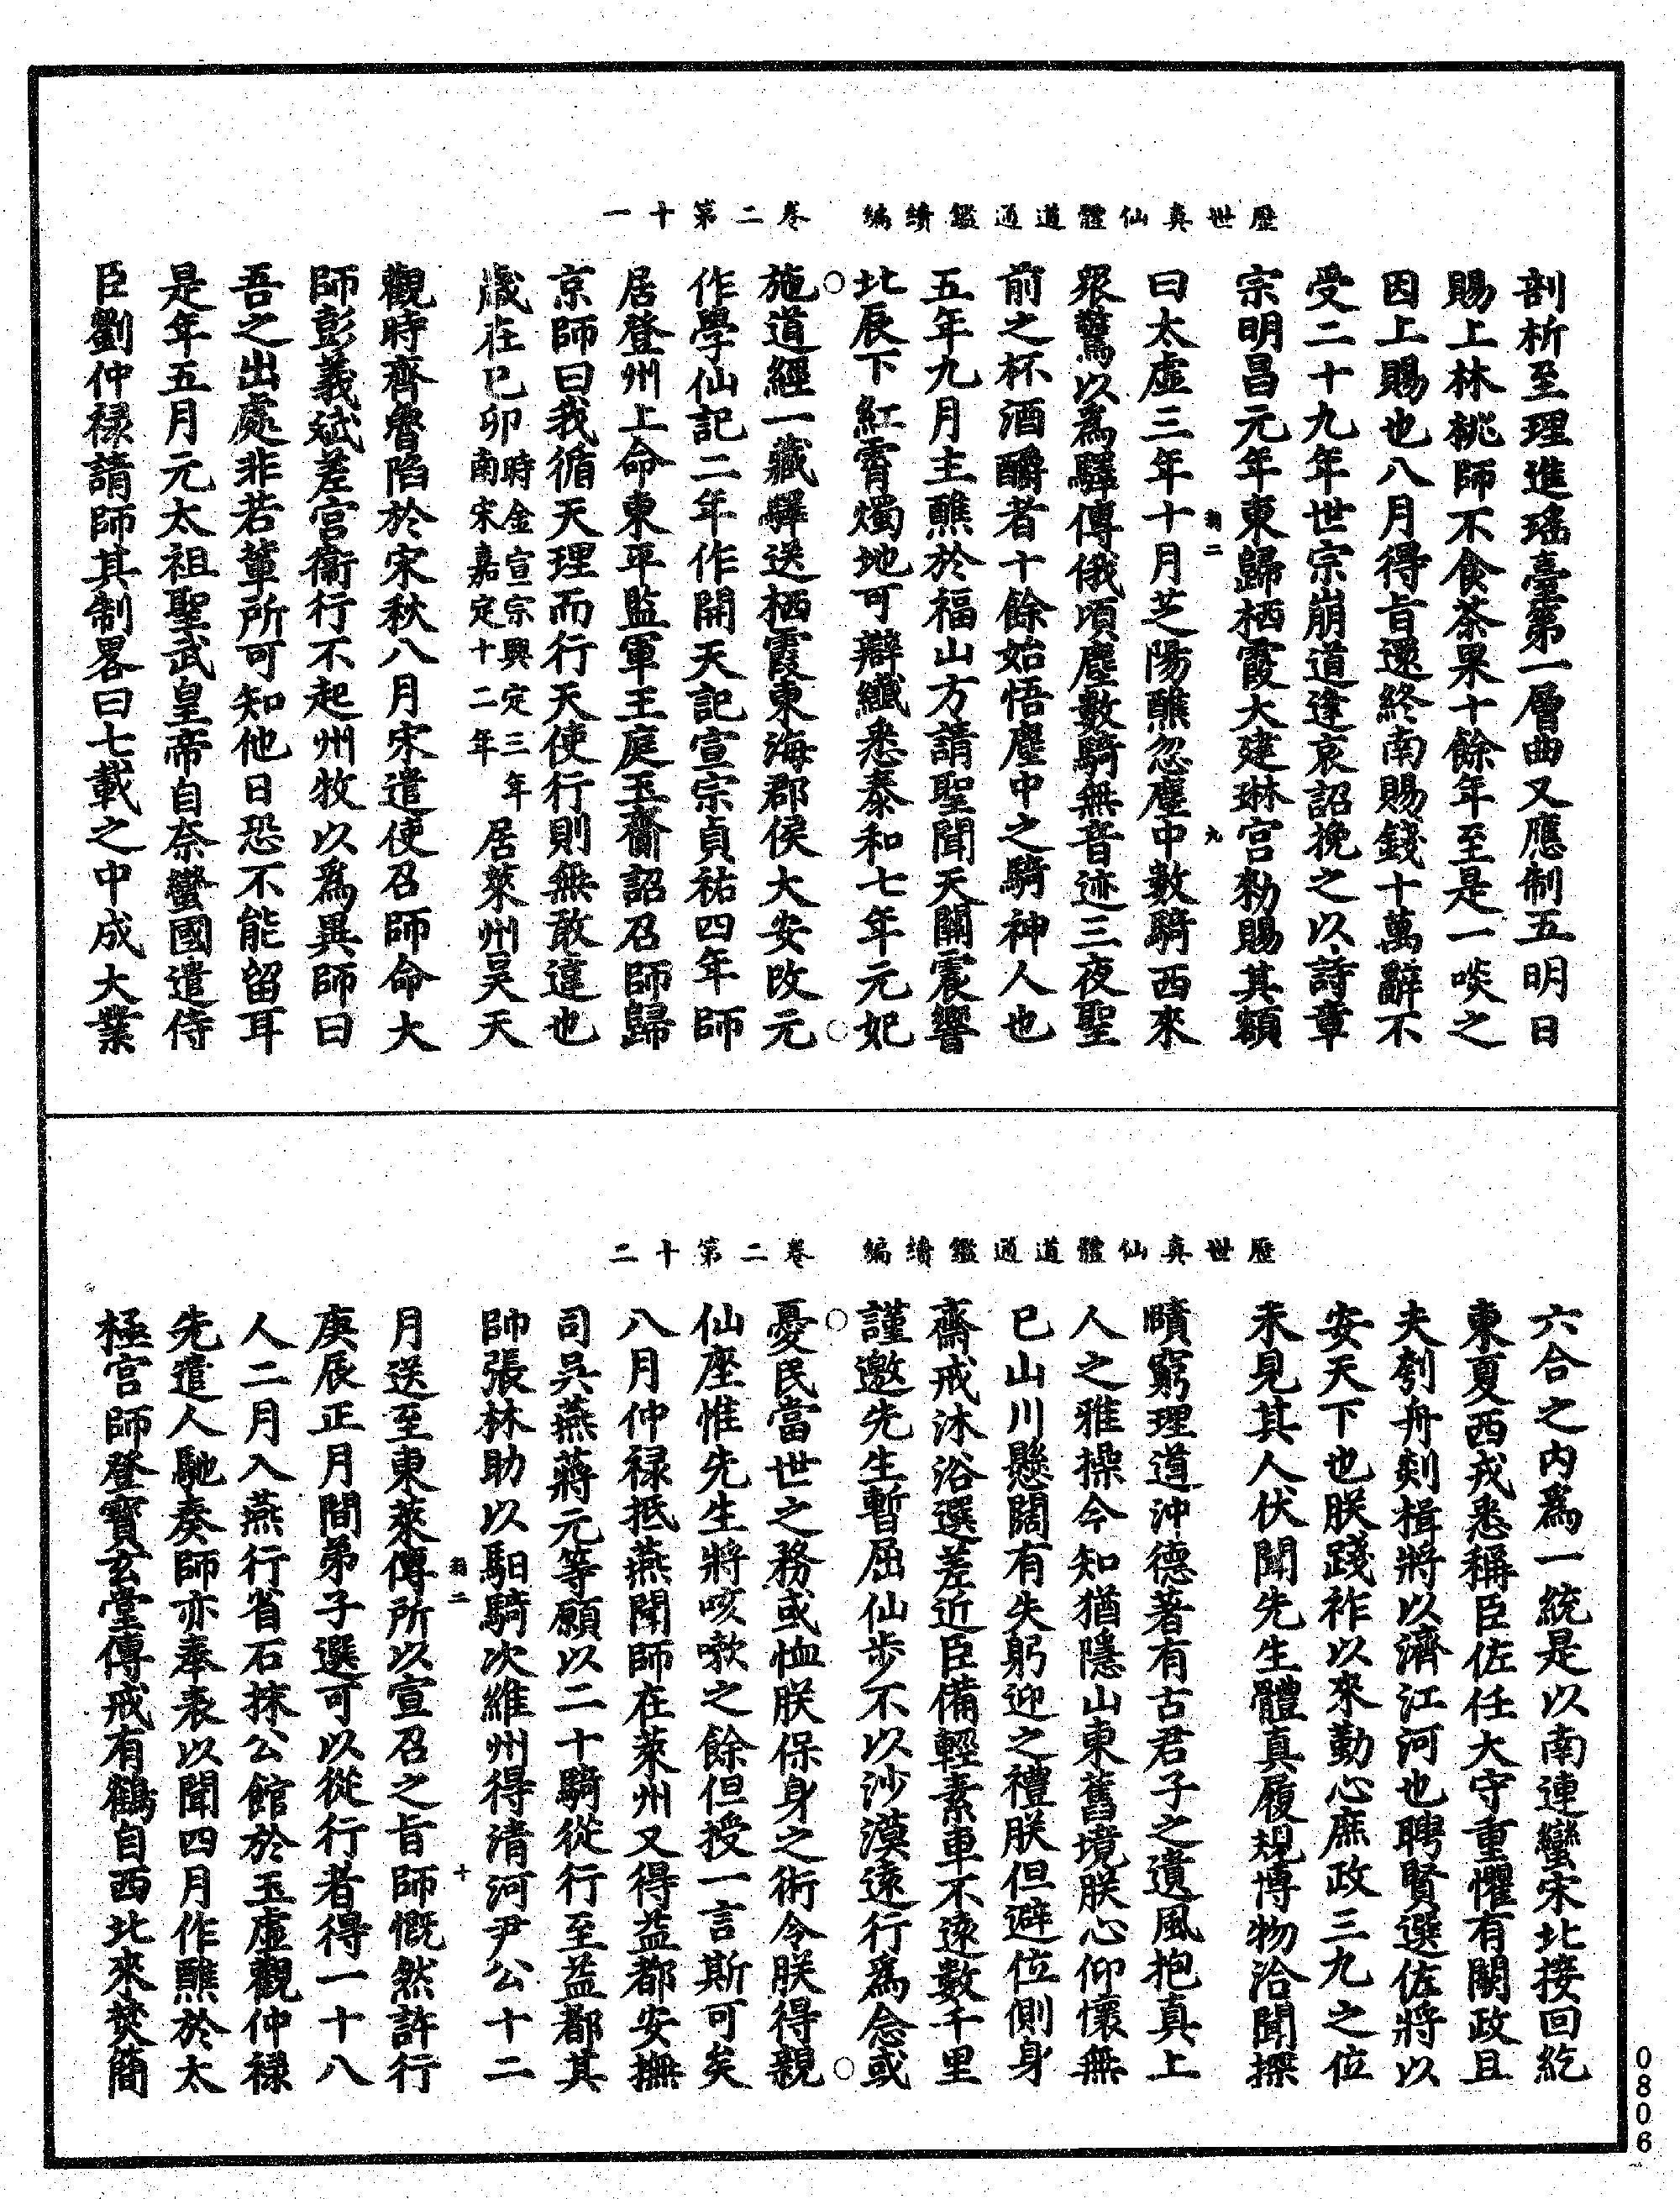 歷世真仙體道通鑑續編　卷二第十一
剖析至理進瑤臺第一層曲又應制五明日
賜上林桃師不食茶果十餘年至是一啖之
因上賜也八月得旨還終南賜錢十萬辭不
受二十九年世宗崩道逢哀詔挽之以詩章
宗明昌元年東歸栖霞大建琳宮勑賜其額
羽二　九
曰太虛三年十月芝陽醮忽塵中數騎西來
眾驚以為驛傳俄頃塵數騎無音迹三夜聖
前之杯酒釂者十餘始悟塵中之騎神人也
五年九月主醮於福山方請聖聞天關震響
北辰下紅霄燭地可辯纖悉泰和七年元妃
施道經一藏驛送栖霞東海郡侯大安改元
作學仙記二年作開天記宣宗貞祐四年師
居登州上命東平監軍王庭玉齎詔召師歸
京師曰我循天理而行天使行則無敢違也
歲在己卯時金宣宗興定三年南宋嘉定十二年居萊州昊天
觀時齊魯陷於宋秋八月宋遣使召師命大
師彭義斌差官衞行不起州牧以為異師曰
吾之出處非若輩所可知他日恐不能留耳
是年五月元太祖聖武皇帝自奈蠻國遣侍
臣劉仲祿請師其制畧曰七載之中成大業
歷世真仙體道通鑑續編　卷二第十二
六合之內為一統是以南連蠻宋北接回紇
東夏西戎悉稱臣佐任大守重懼有闕政且
夫刳舟剡楫將以濟江河也聘賢選佐將以
安天下也朕踐祚以來勤心庶政三九之位
未見其人伏聞先生體真履規博物洽聞探
賾窮理道沖德著有古君子之遺風抱真上
人之雅操今知猶隱山東舊境朕心仰懷無
已山川懸闊有失躬迎之禮朕但避位側身
齋戒沐浴選差近臣備輕素車不遠數千里
謹邀先生暫屈仙步不以沙漠遠行為念或
憂民當世之務或恤朕保身之術令朕得親
仙座惟先生將咳嗽之餘但授一言斯可矣
八月仲祿抵燕聞師在萊州又得益都安撫
司吳燕蔣元等願以二十騎從行至益都其
帥張林助以馹騎次維州得清河尹公十二
羽二　十
月送至東萊傳所以宣召之旨師慨然許行
庚辰正月間弟子選可以從行者得一十八
人二月入燕行省石抹公館於玉虛觀仲祿
先遣人馳奏師亦奉表以聞四月作醮於太
極宮師登寶玄堂傳戒有鶴自西北來焚簡
0806